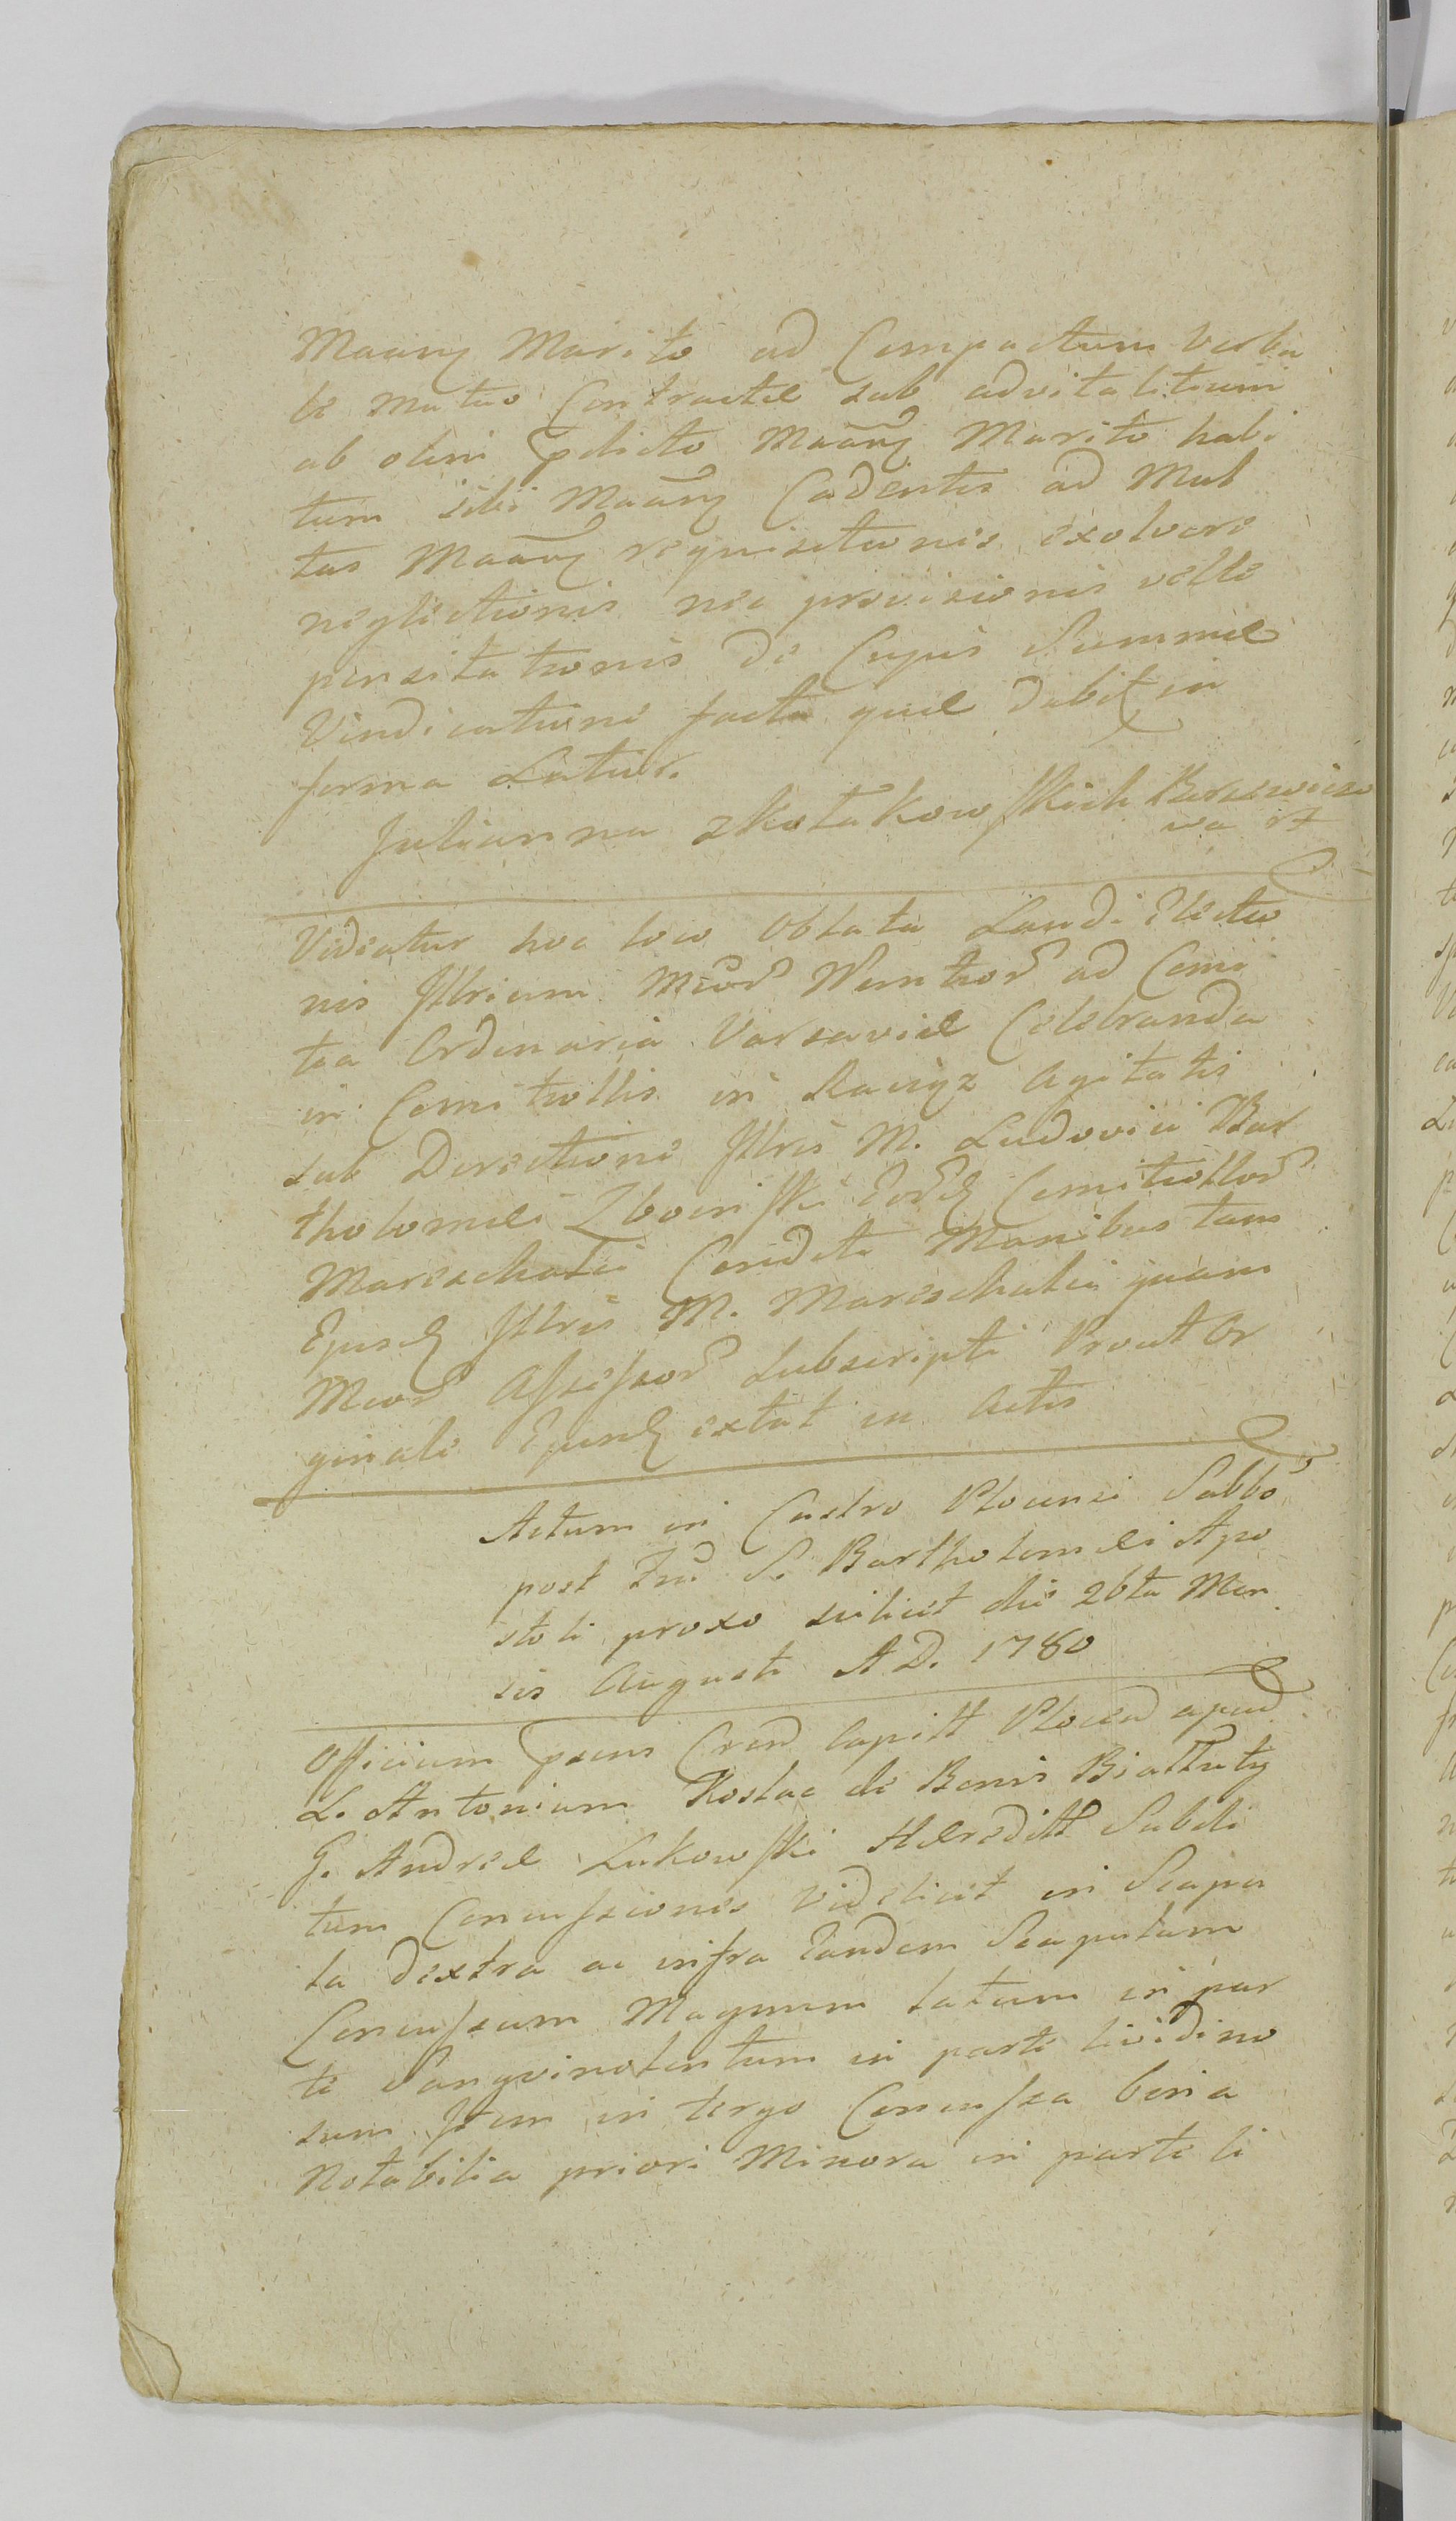 Maãnj Marito ad Compactum Verba
le mutuo Contractæ sub advitalitium
ab olim pdicto Maãnj Marito habi
tum sibi Maãnj Cadentis ad Mul
tas Maãnj requisitiones exolvere
neglectionis nec provisionis velle
pensitationis de Cujus Summæ
Vindicatione facta quæ dabit in
forma Latior.
Julianna z Kotakowskich Barszewiczo
wa
Videatur hoc loco Oblata Laudi Electio
nis Illrium Mcorũ Nuntiorũ ad Comi
tia Ordinaria Varsaviæ Celebranda
in Comitiollis in Raciąz Agitatis
sub Directione Illris M. Ludovici Bar
tholomæi Zboinski Eorũd Comitiollorũ
Mareschalci Conditi Manibus tam
Ejusd Illris M. Mareschalci quam
Mcorũ Assessorũ Subscripti Prout Or
ginale Ejusd extat in Actis
Actum in Castro Plocensi Sabbõ
post Fũ S. Bartholomæi Apo
stoli proxo scilicet die 26ta Men
sis Augusti A D. 1780
Officium psens Cased Capitt Plocen apud
L. Antonium Kostac de Bonis Białkuty
G. Andreæ Lukowski Hæreditt Subdi
tum Concussiones Videlicet in Scapu
la dextra ac infra Eandem Scapulam
Concussum Magnum latum in par
te Sangvinolentum in parte lividino
sum Item in tergo Concussa bina
Notabilia priori Minora in parte li